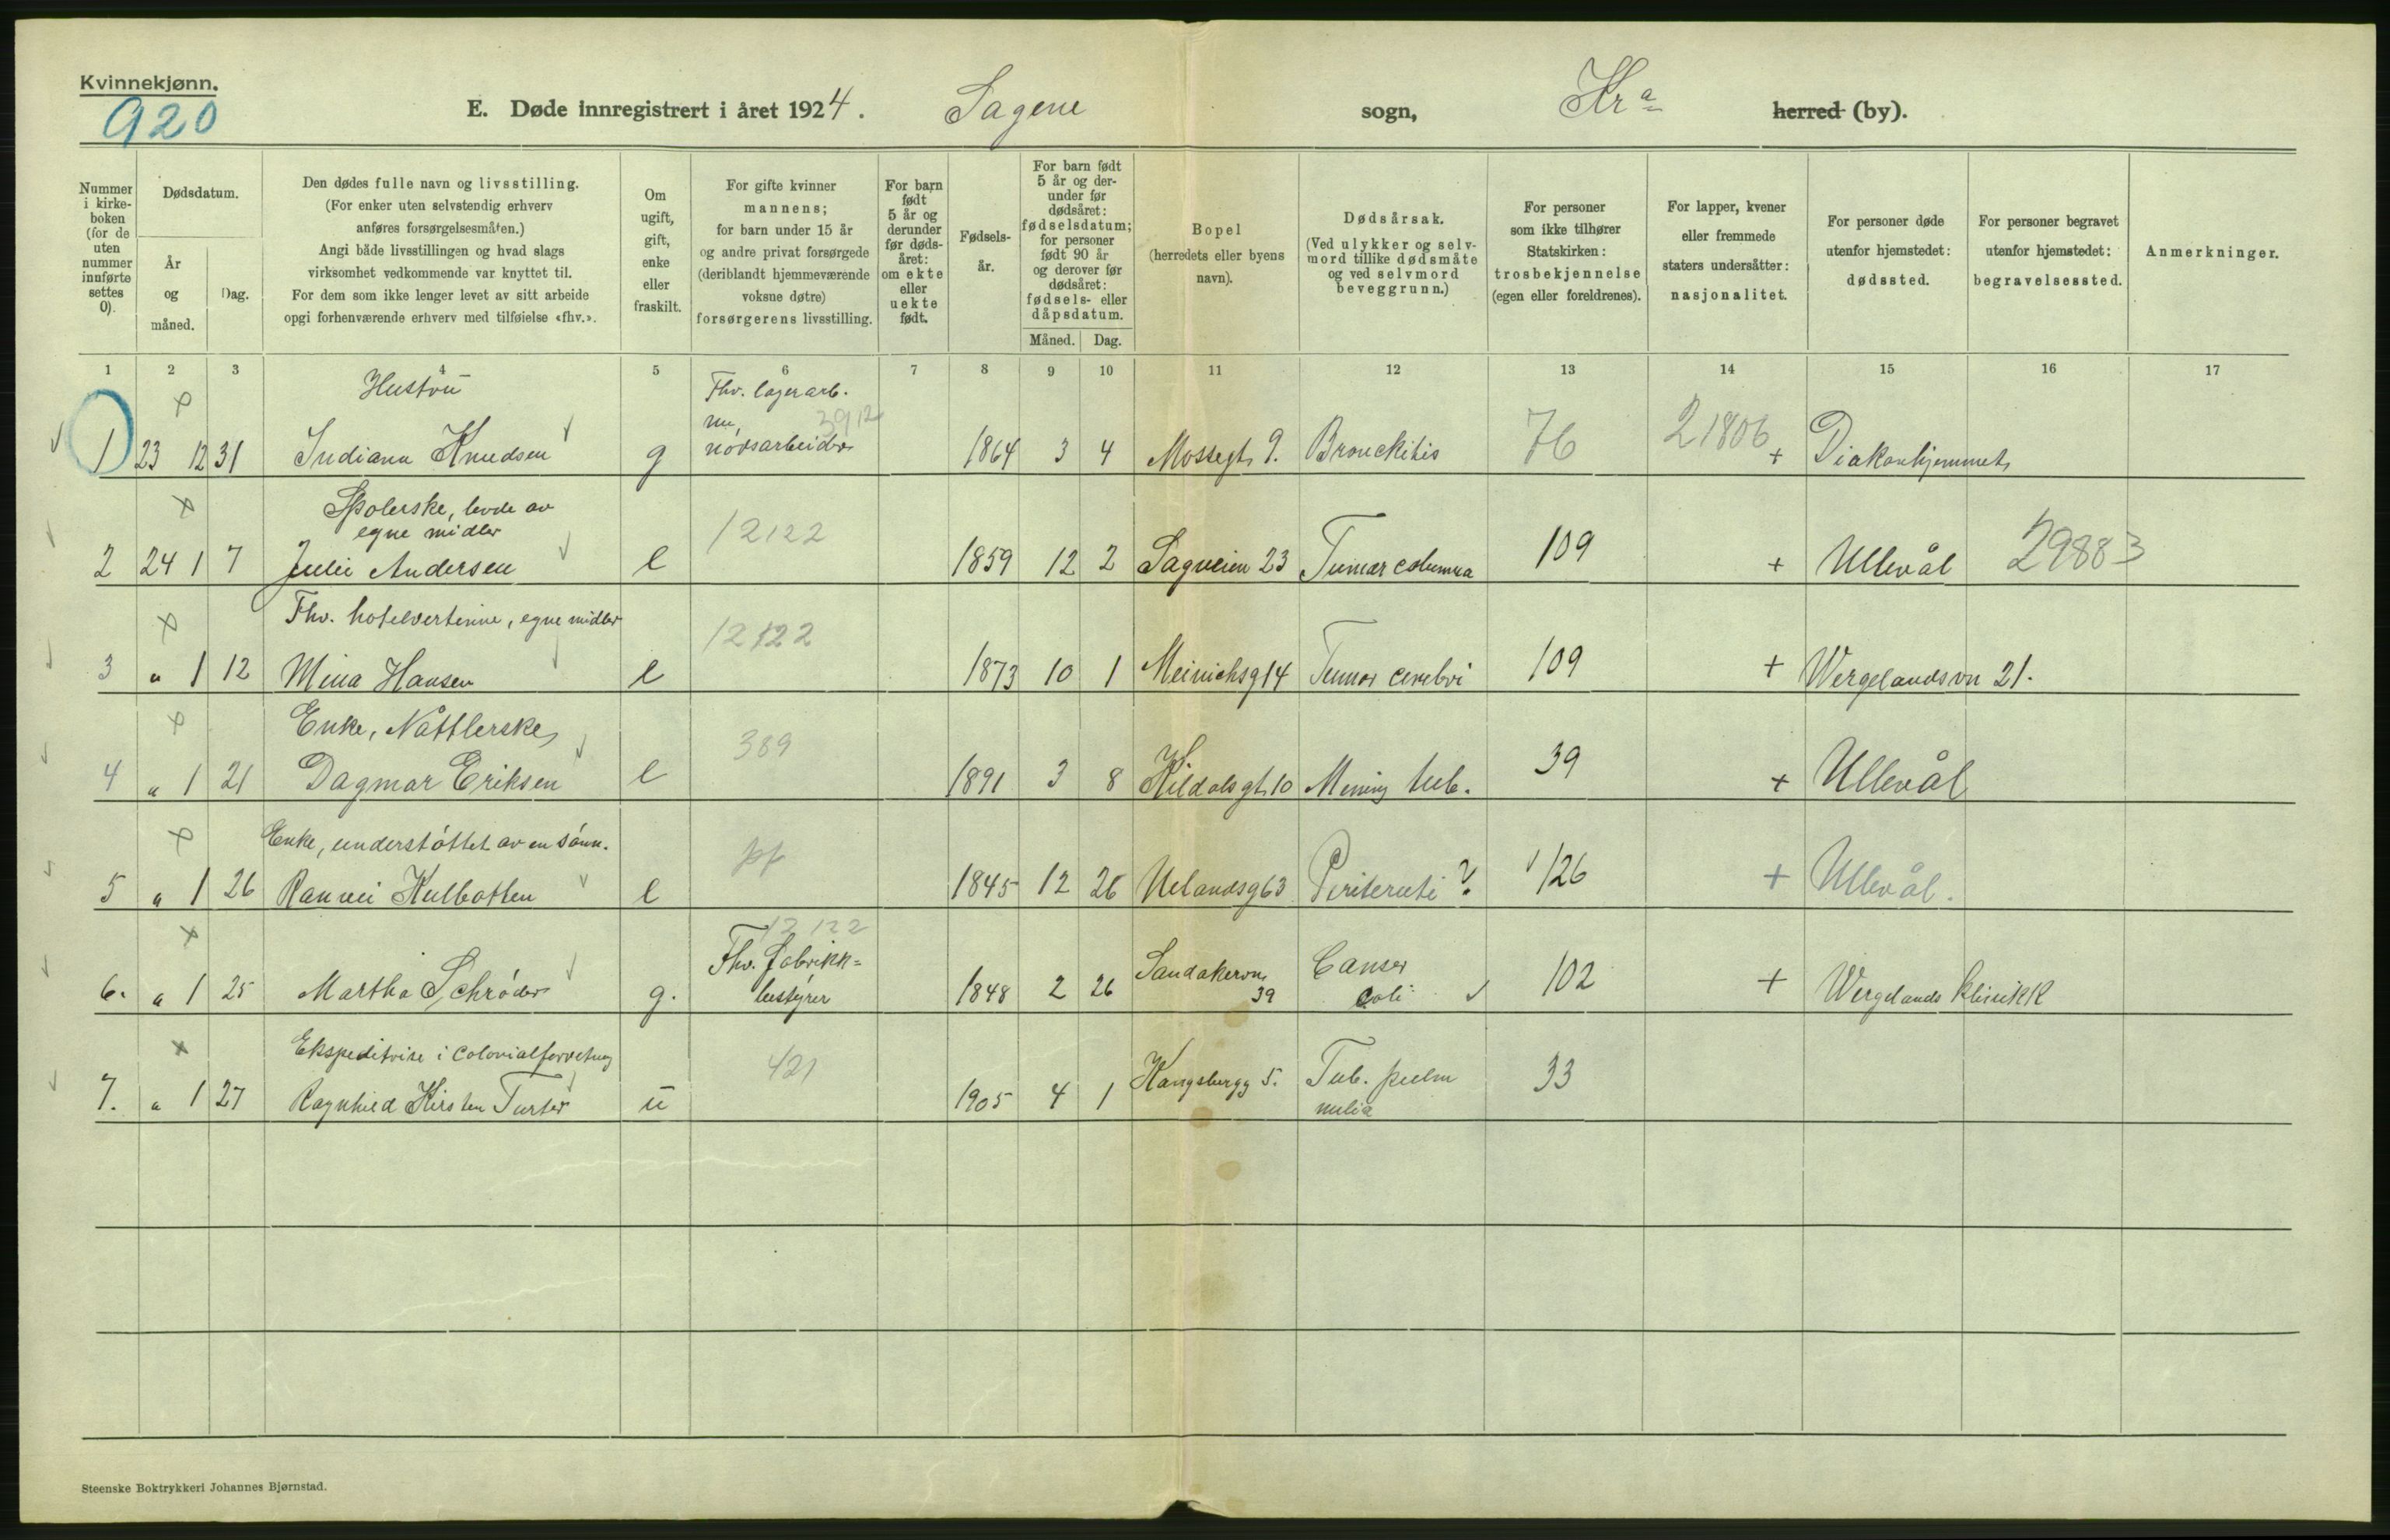 Kvinnekjønn.
920
E. Døde innregistrert i året 1924. Sagene sogn, Kra herred (by).
Nummer i kirke-boken (for de uten nummer innførte settes 0).
Dødsdatum.
År og måned.
Dag.
Den dødes fulle navn og livsstilling.
(For enker uten selvstendig erhverv
anføres forsørgelsesmåten.)
Angi både livsstillingen og hvad slags
virksomhet vedkommende var knyttet til.
For dem som ikke lenger levet av sitt arbeide
opgi forhenværende erhverv med tilføielse «fhv.».
Om
ugift,
gift,
enke
eller
fraskilt.
For gifte kvinner
mannens;
for barn under 15 år
og andre privat forsørgede
(deriblandt hjemmeværende
voksne døtre)
forsørgerens livsstilling.
For barn
født
5 år og
derunder
før døds-
året:
om ekte
eller
uekte
født.
Fødsels-
år.
For barn født
5 år og der-
under før
dødsåret:
fødselsdatum;
for personer
født 90 år
og derover før
dødsåret:
fødsels- eller
dåpsdatum.
Måned. Dag.
Bopel
(herredets eller byens
navn).
Dødsårsak.
(Ved ulykker og selv-
mord tillike dødsmåte
og ved selvmord
beveggrunn.)
For personer
som ikke tilhører
Statskirken:
trosbekjennelse
(egen eller foreldrenes).
For lapper, kvener
eller fremmede
staters undersåtter:
nasjonalitet.
For personer døde
utenfor hjemstedet:
dødssted.
For personer begravet
utenfor hjemstedet:
begravelsessted.
Anmerkninger.
1 2 3 4 5 6 7 8 9 10 11 12 13 14 15 16 17
Hustru Fhv. lagerarb.
nu, 3912
1 23 12 31 Indiana Knudsen g nødsarbeider 1864 3 4 Mossegt 9. Bronckitis 76 21806 + Diakonhjemmet
Spolerske, levde av
egne midler 12122
2 24 1 7 Julie Andersen e 1859 12 2 Sagveien 23 Tumor columna 109 + Ullevål 29883
Fhv. hotelvertinne, egne midler
12122
3 " 1 12 Mina Hansen e 1873 10 1 Meinichsg 14 Tumor cerebri 109 + Wergelandsvn 21.
Enke, Nåttlerske,
389
4 " 1 21 Dagmar Eriksen e 1891 3 8 Kildalsgt 10 Mening tub. 39 + Ullevål
Enke, understøttet av en sønn.
pf
5 " 1 26 Ranvei Kulbotten e 1845 12 26 Uelandsg 63 ? 126 + Ullevål.
12122
Fhv. fabrikk=
Sandakervn Canser
6. " 1 25 Martha Schrøder g. bestyrer 1848 2 26 39 coli 102 + Wergelands klinikk
Ekspeditrise i Colonialforretng
421
7. " 1 27 Ragnhild Kirsten Turter u 1905 4 1 Kongsbergg 5. Tub. pulm 33
Steenske Boktrykkeri Johannes Bjørnstad.